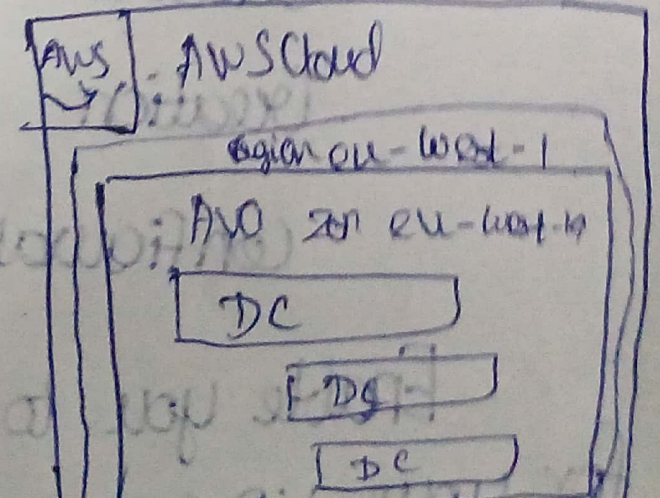 AWS
AWS Cloud
region eu-west-1
AVO zon eu-west-1a
DC
DC
DC